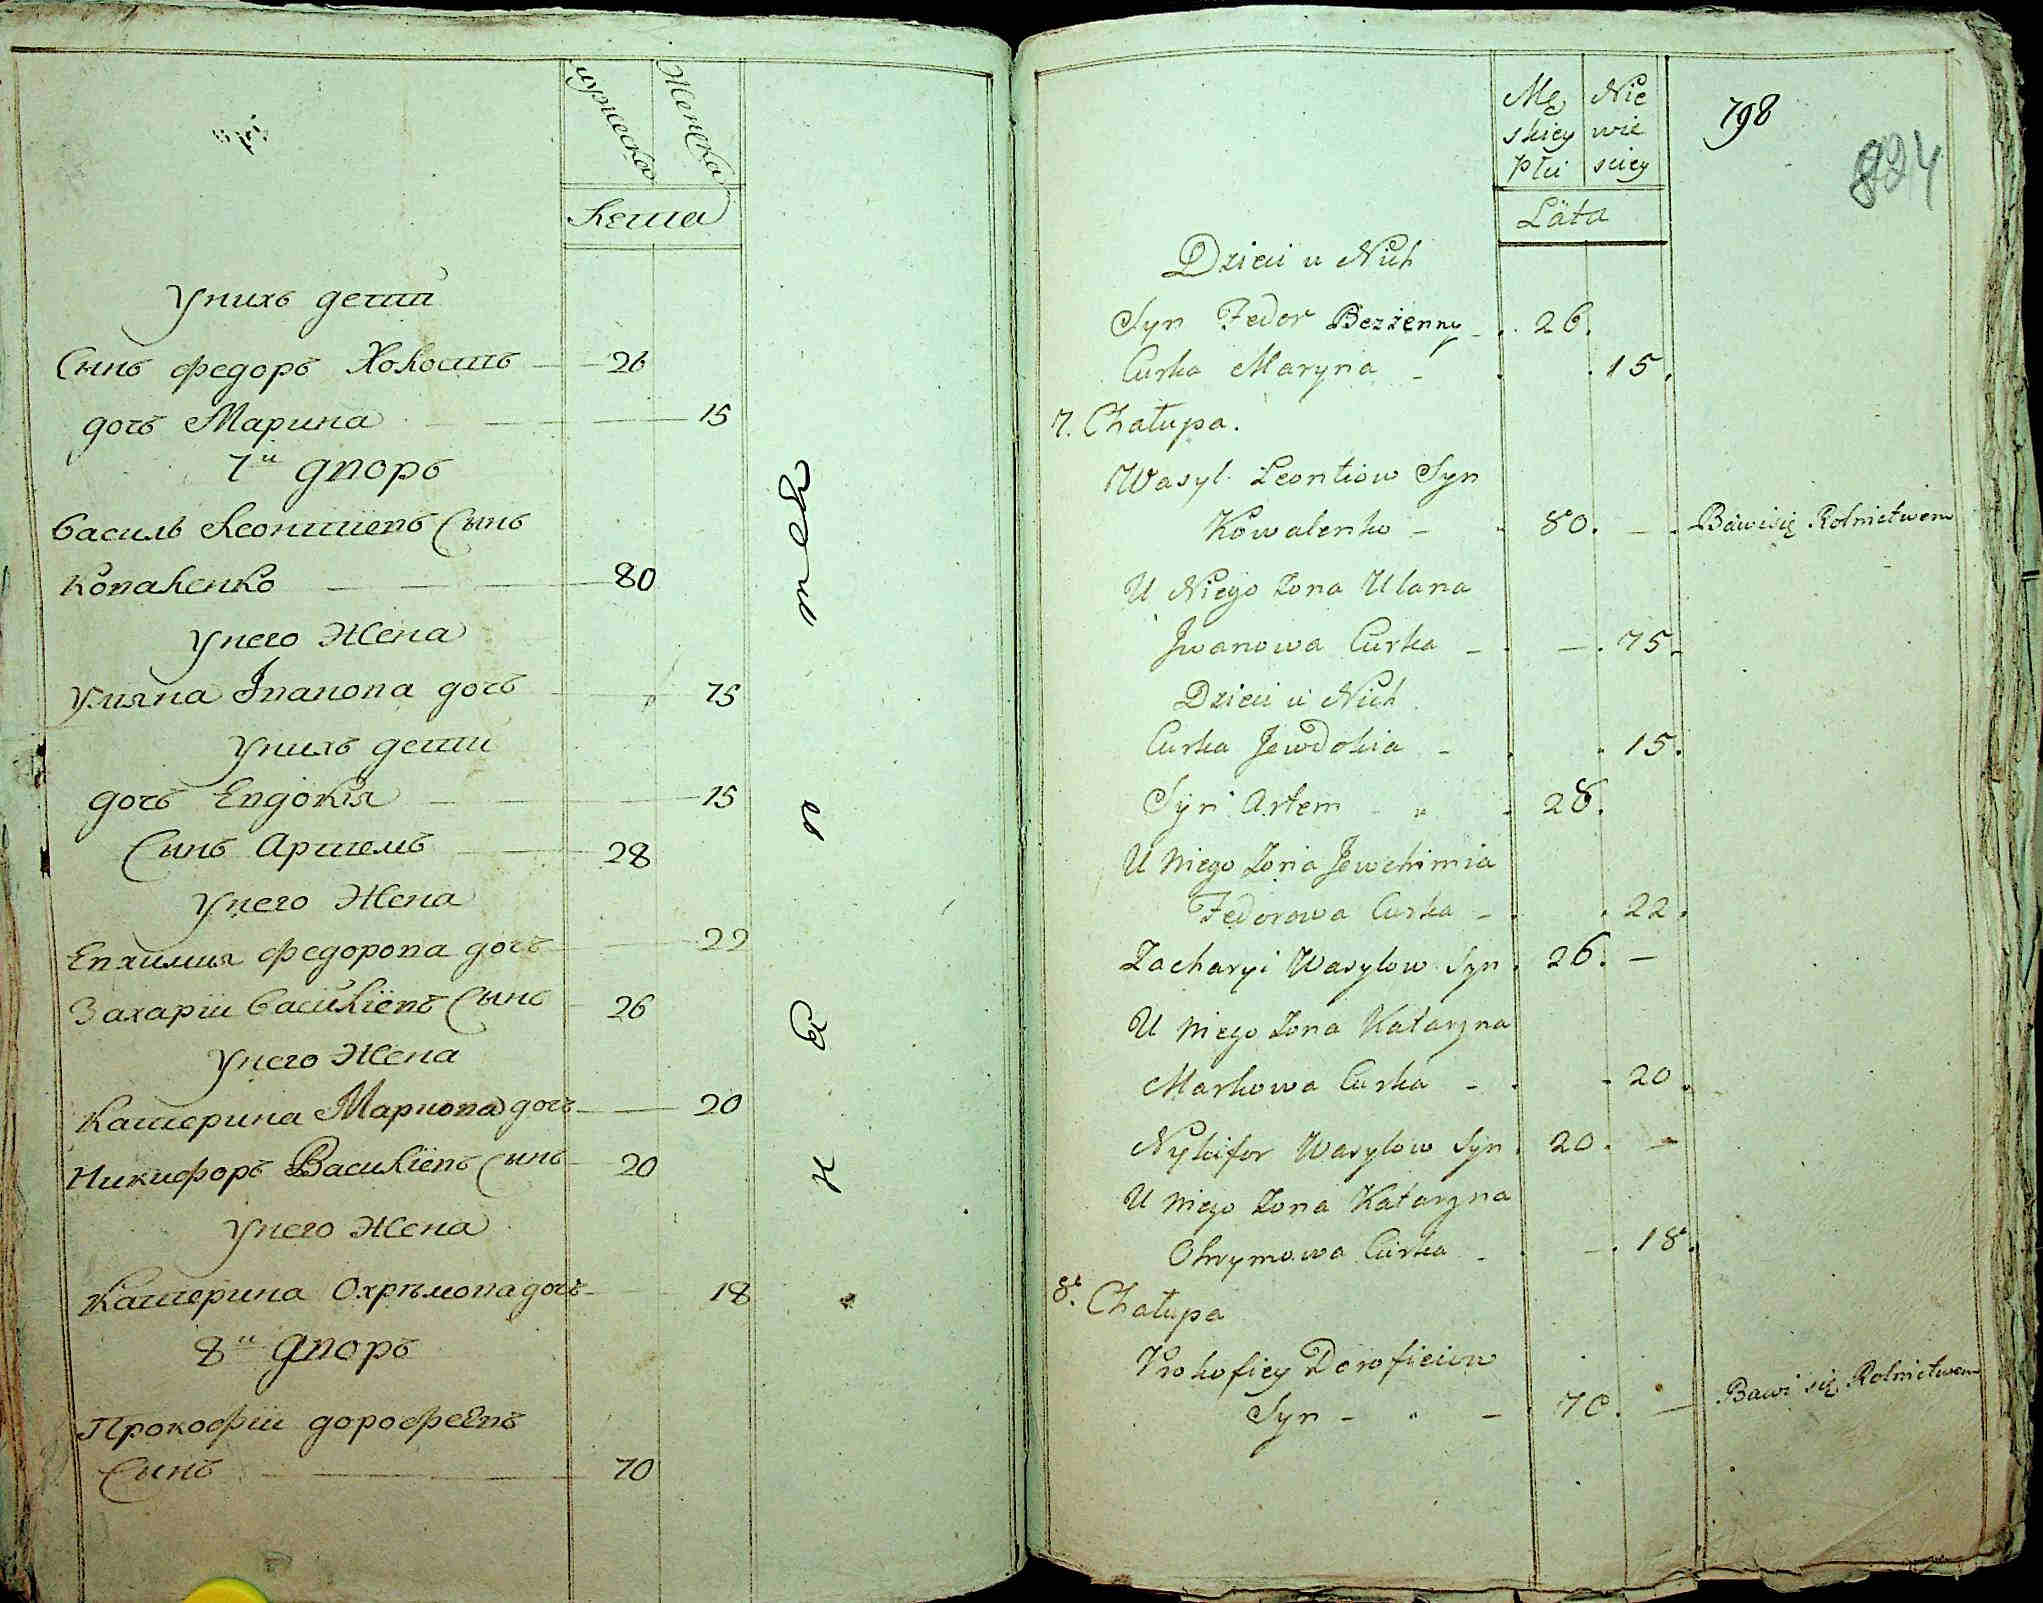 мужеска
Женска
Лета
У нихъ дети
Сынъ федоръ Холостъ 26
дочь Марина 15
7й дворъ
Василь Леонтиевъ Сынъ
Коваленко 80
У него Жена
Уляна Iванова дочь 75
У нихъ дети
дочь Евдокiя 15
Сынъ Артемъ 28
У него Жена
Евхимия федорова дочь 22
Захарiи Василiевъ Сынъ 26
У него Жена
Катерина Маркова дочь 20
Никифоръ Василiевъ Сынъ 20
У него Жена
Катерина Охрѣмова дочь 18
8й дворъ
Прокофiи дорофеевъ
Сынъ 70
Mę Nie
skiey wie
Płci sciey
Läta
798
824
Dzieci u Nich
Syn Fedor Bezżenny 26.
Curka Maryna 15.
7. Chałupa.
Wasyl Leontiow Syn
Kowalenko 80. Bawi się Rolnictwem
U Niego Zona Ulana
Jwanowa Curka 75.
Dzieci u Nich
Curka Jewdokia 15.
Syn Artem 28.
U Niego Zona Jewchimia
Fedorowa Curka 22.
Zacharyi Wasylow Syn 26.
U Niego Zona Katarzna
Markowa Curka 20.
Nykifor Wasylow Syn 20.
U Niego Zona Katarzna
Ohrymowa Curka 18.
8. Chałupa
Prokofiey Dorofieiow
Syn 70. Bawi się Rolnictwem